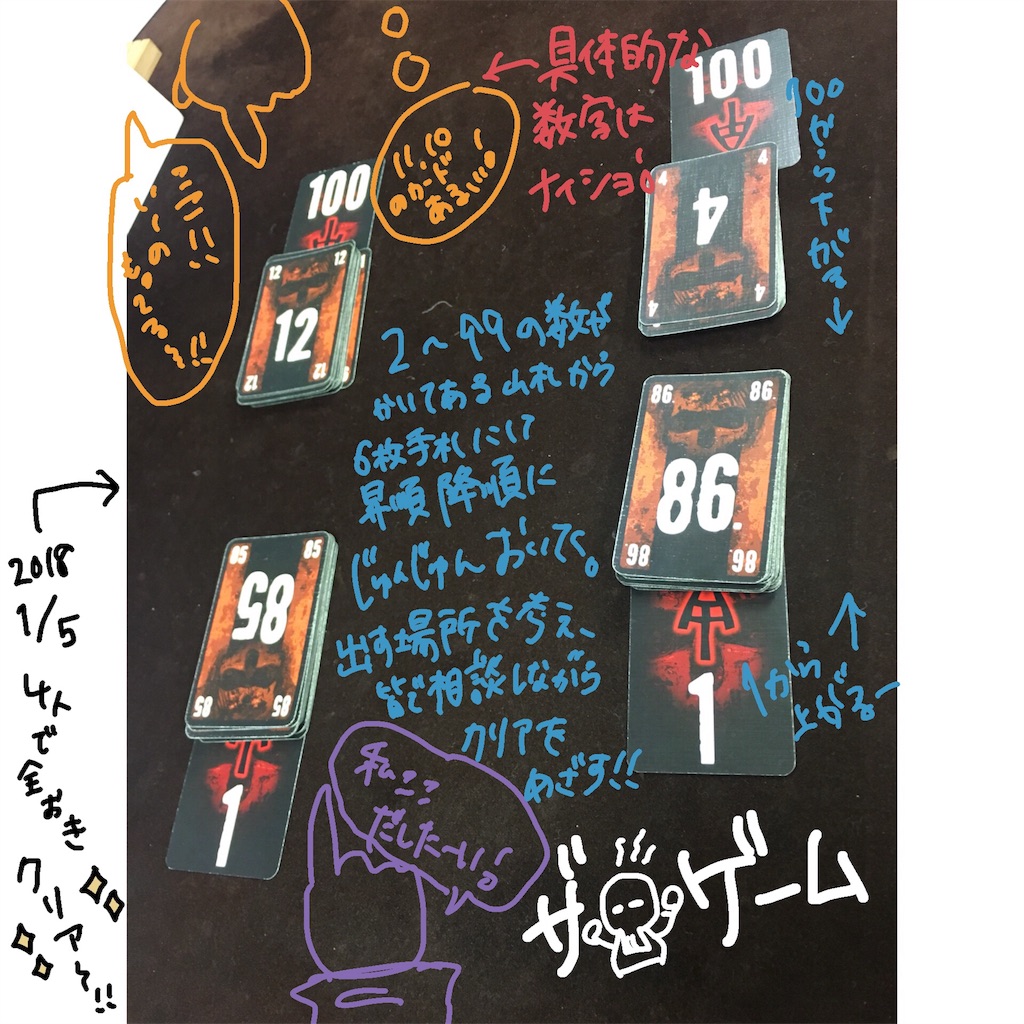 ← 具体的な
数字は
ナイショ!
11.10
のカード
ある…!
100
12
12
12
12
12
100
4
4
4
4
4
100
から下がる→
2〜99の数が
かいてある山札から
6枚手札にして
昇順降順に
じゅんじゅんおいてく。
出す場所を考え、
皆で相談しながら
クリアを
めざす!!
86.
86.
86.
86.
86.
1
1から
上がる→
85
85
85
85
85
1
2018
1/5
4人で
全おき
クリアで!!
私ここ
だしたーい!
ザ・ゲーム